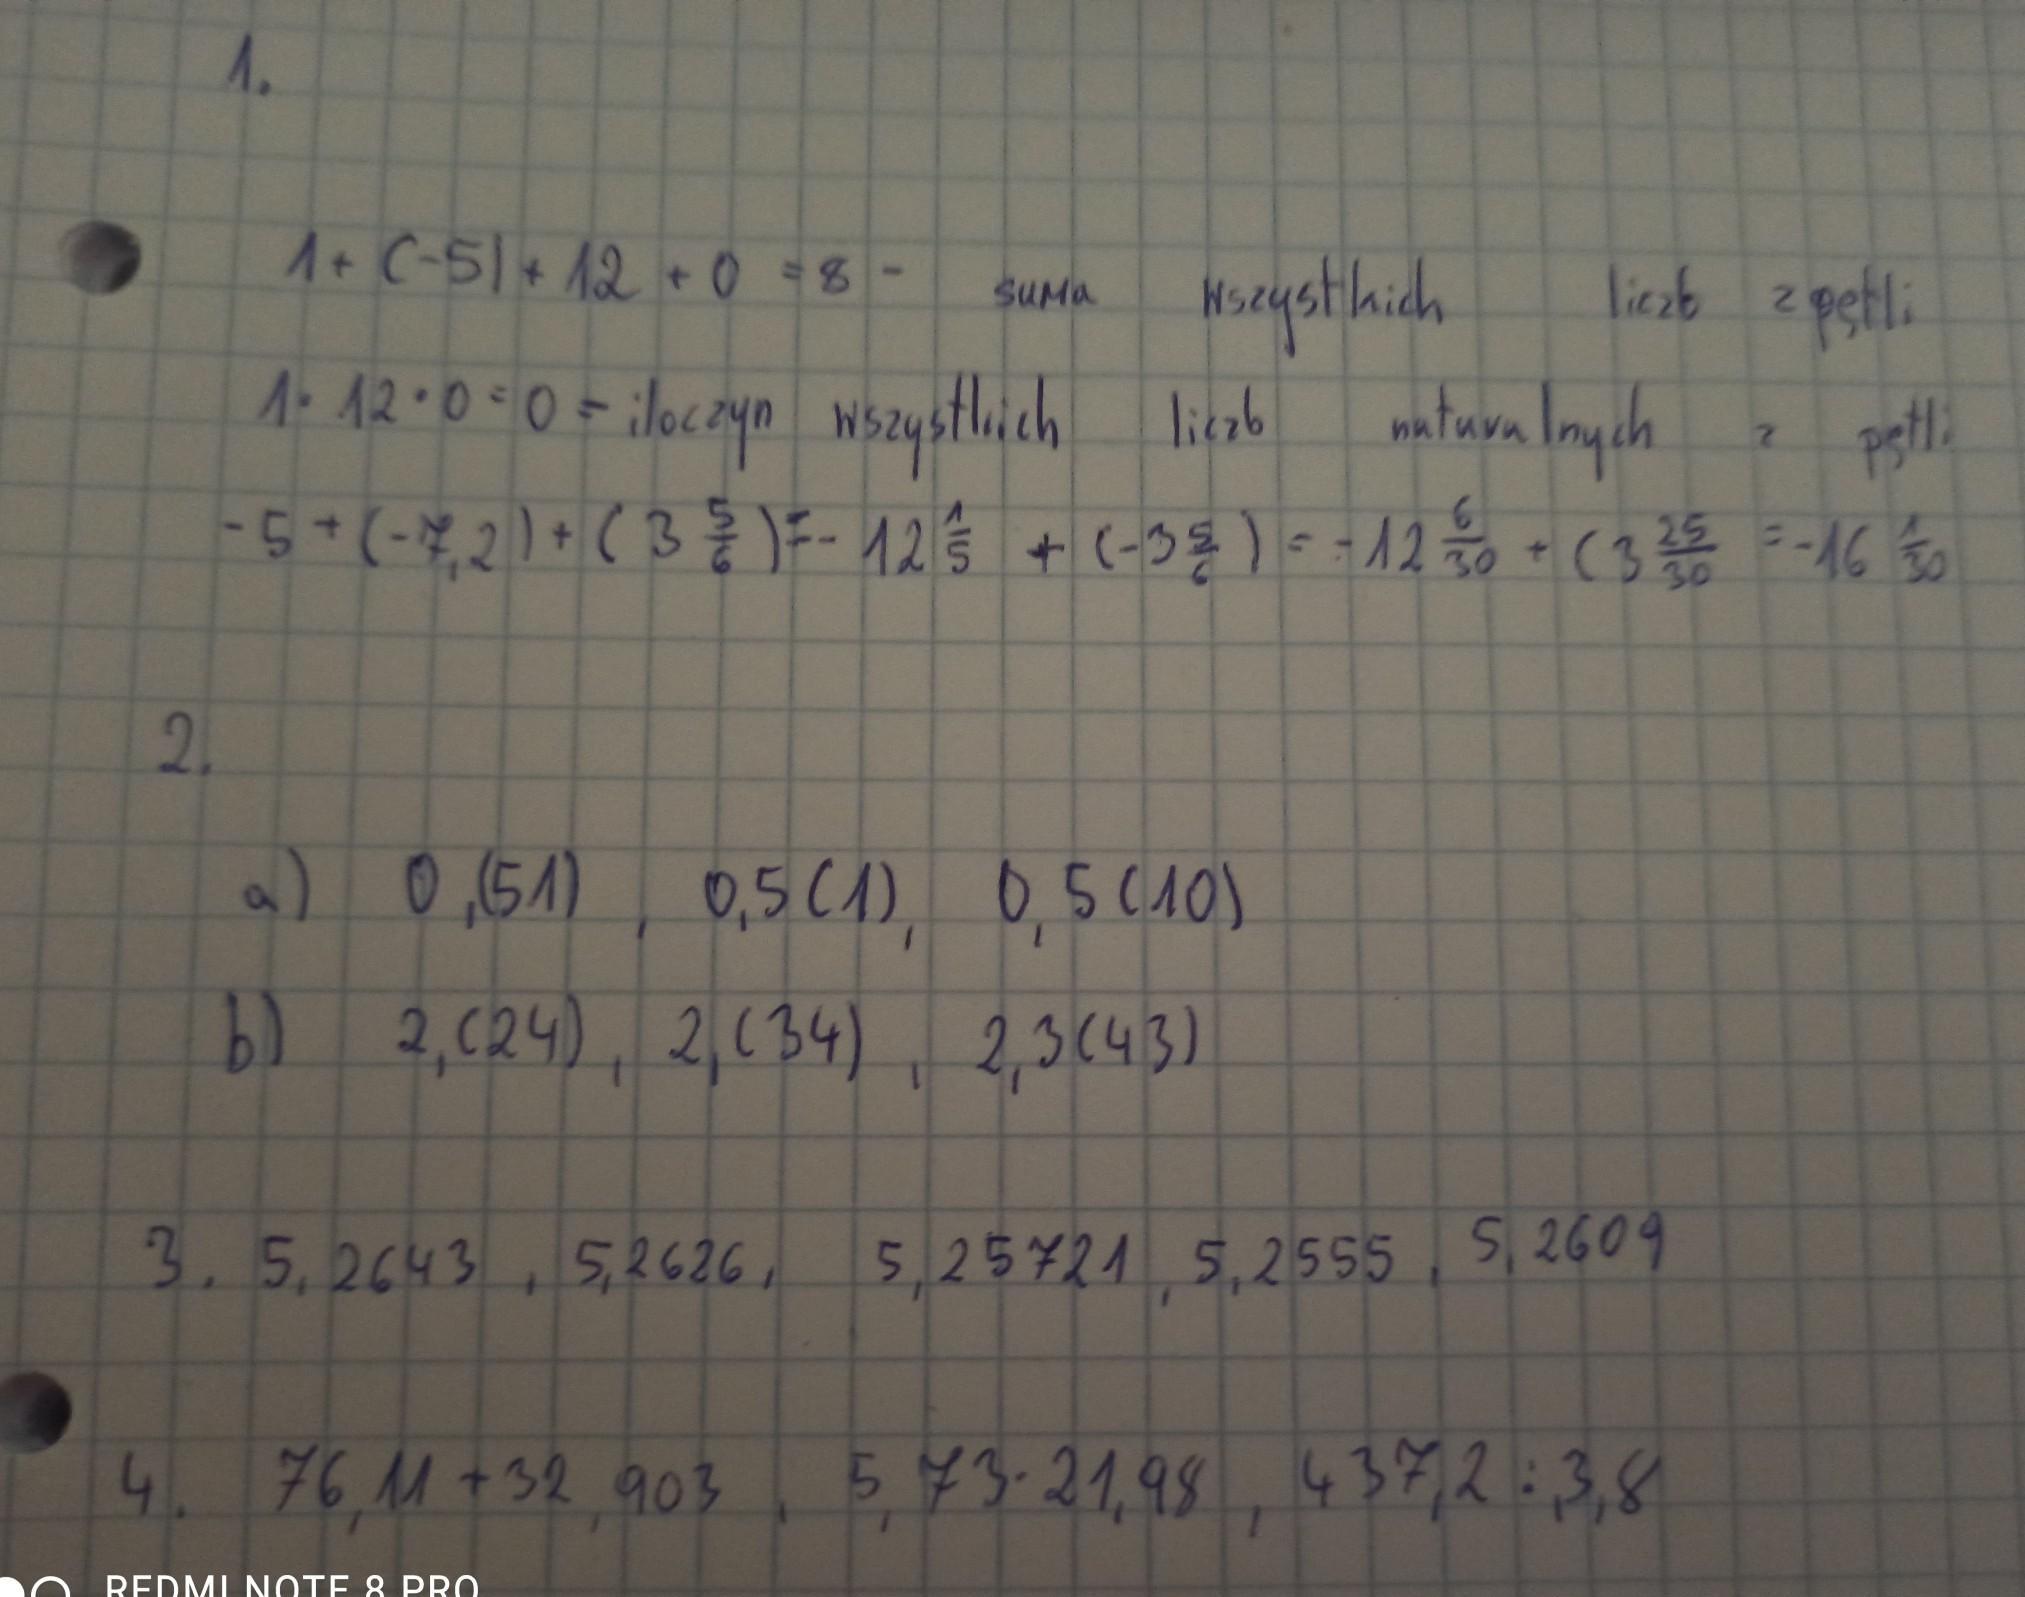 1.
1 + (-5) + 12 + 0 = 8 - suma wszystkich liczb z pętli
1 · 12 · 0 = 0 = iloczyn wszystkich liczb naturalnych z pętli
-5 + (-7,2) + (3 5/6) = -12 1/5 + (-3 5/6) = -12 6/30 + (3 25/30 = -16 1/30
2.
a) 0,(51) , 0,5(1), 0,5(10)
b) 2,(24), 2,(34) , 2,3(43)
3. 5,2643 , 5,2626, 5,25721 , 5,2555 , 5,2609
4. 76,11 + 32,903 , 5,73 · 21,98 , 437,2 : 3,8
REDMI NOTE 8 PRO